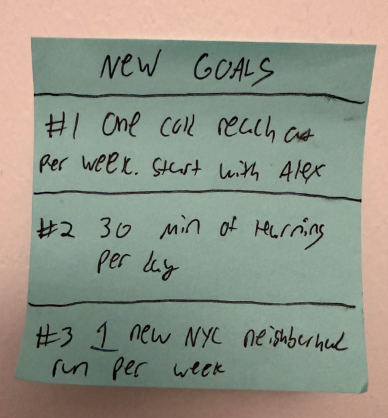 NEW GOALS
#1 One call reach out
per week. start with Alex
#2 30 min of learning
per day
#3 1 new NYC neighborhood
run per week